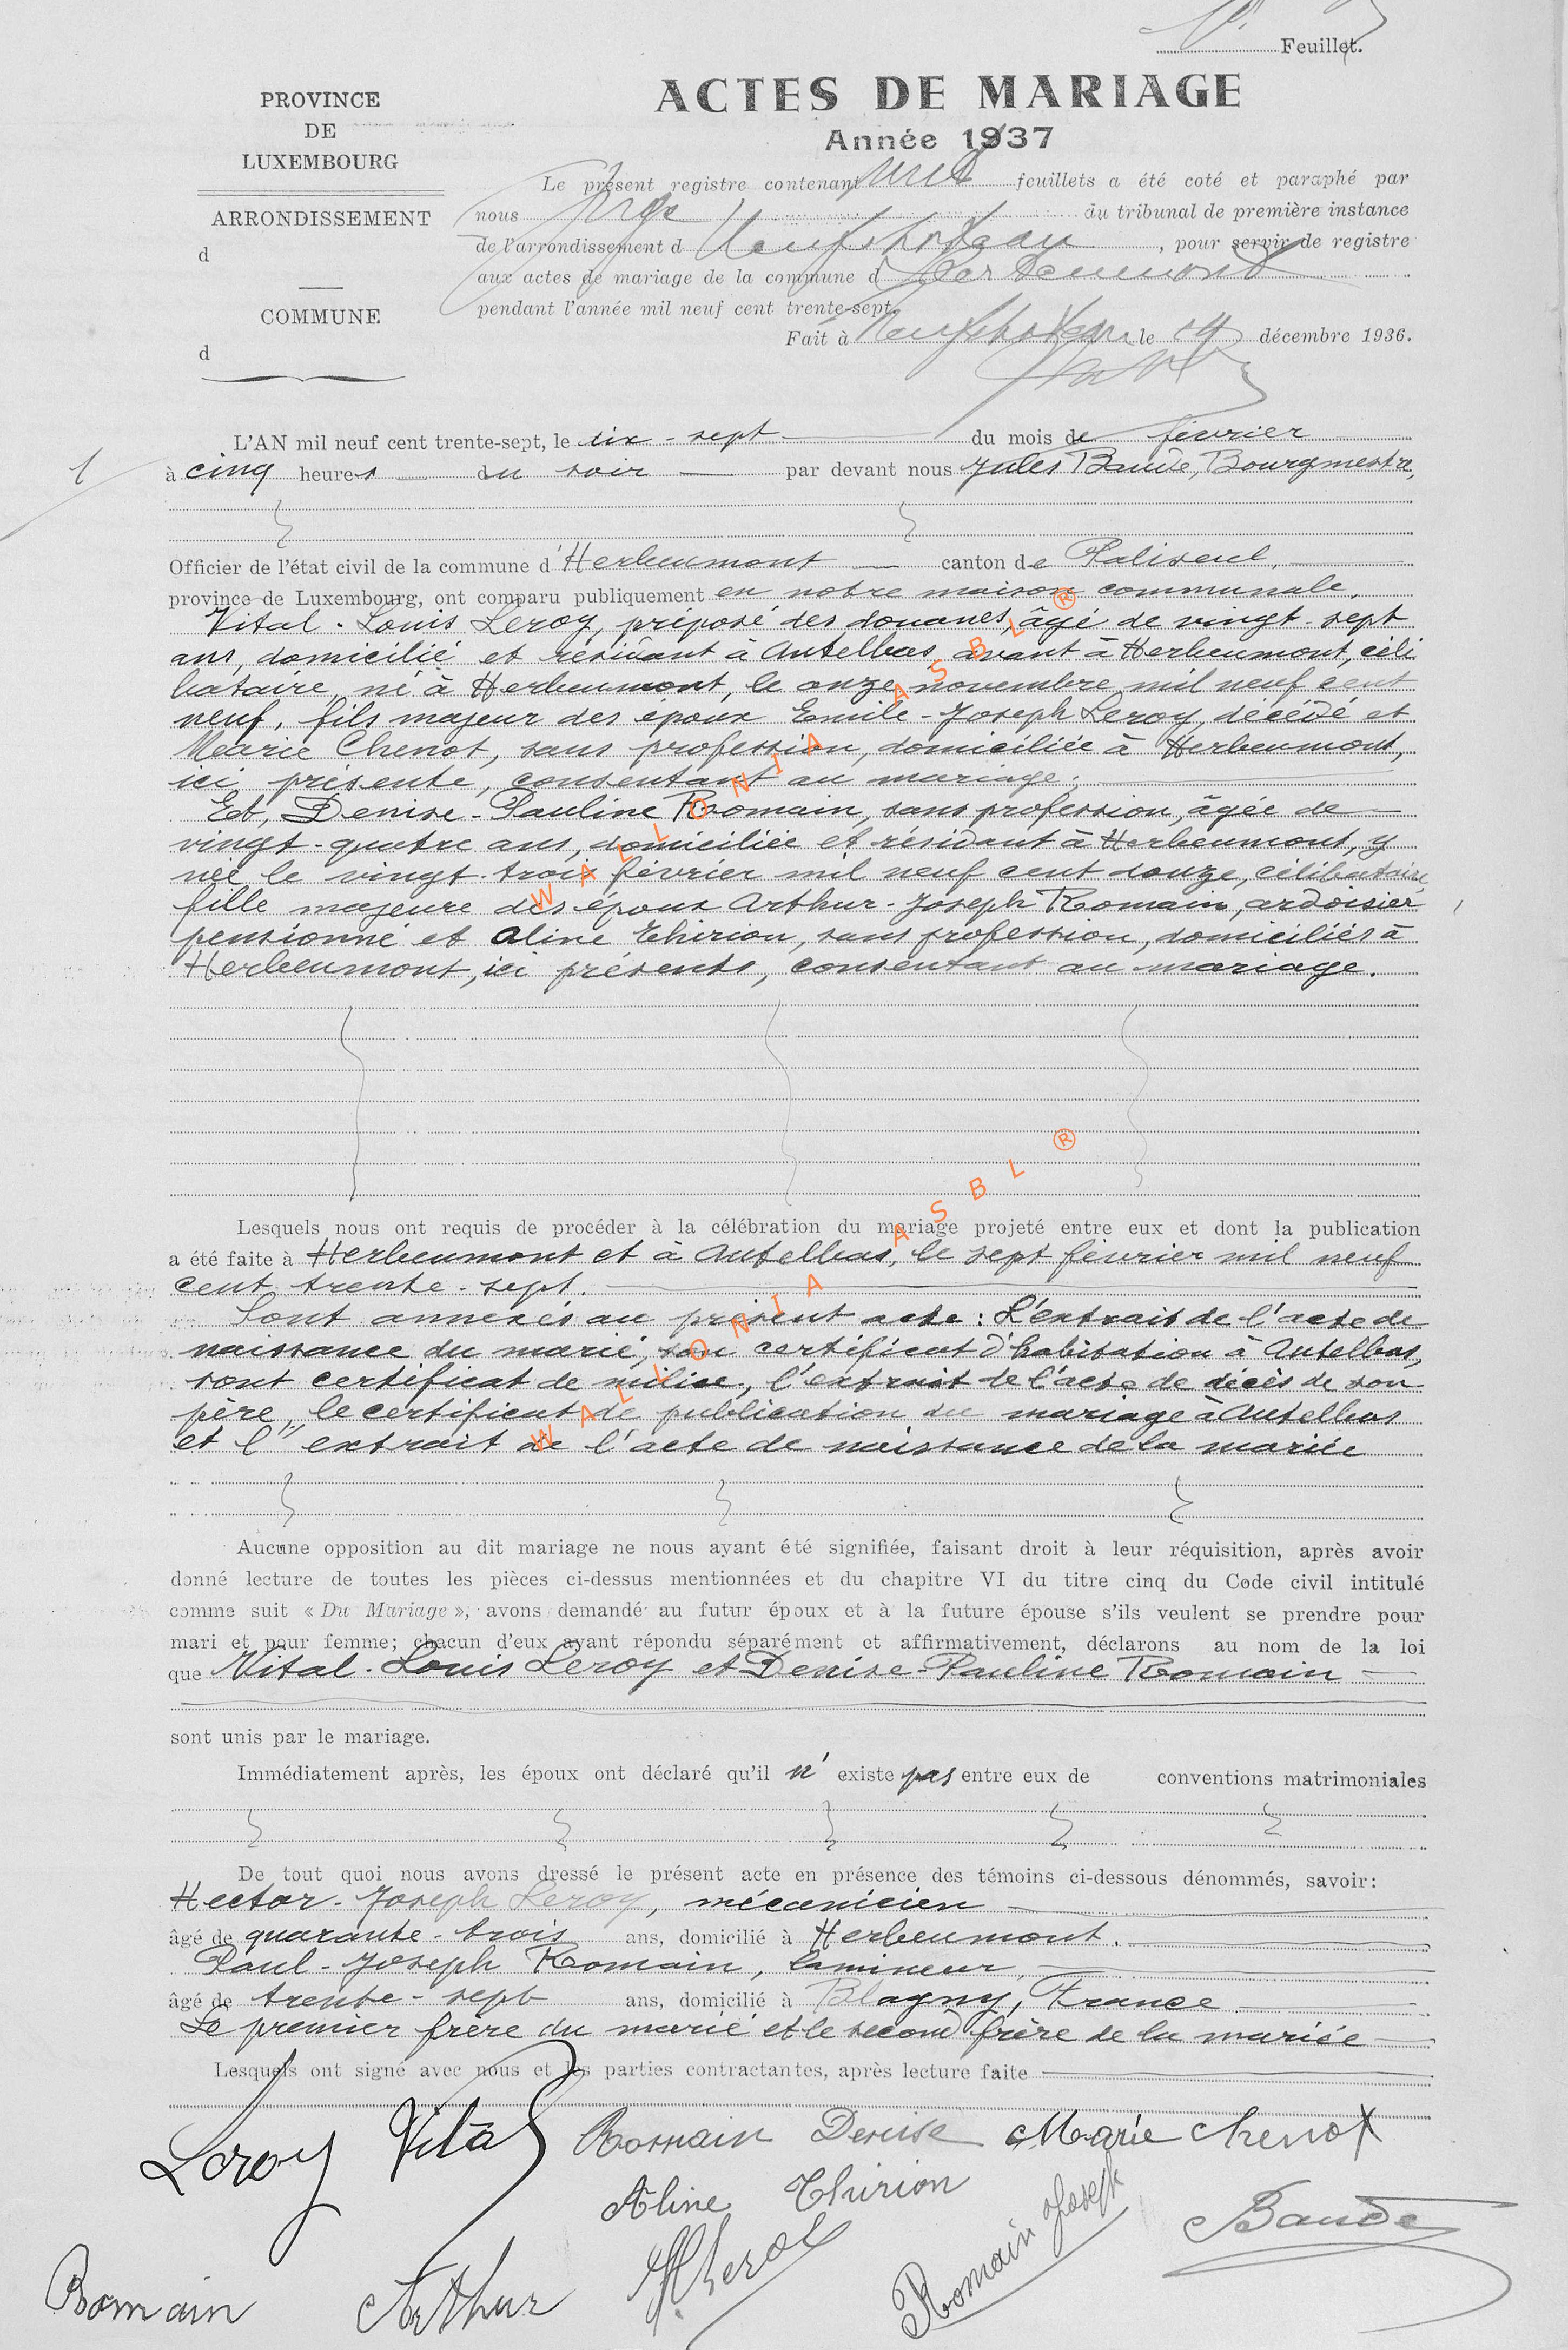 Feuillet.
PROVINCE
DE
LUXEMBOURG
ARRONDISSEMENT
d
COMMUNE
d
ACTES DE MARIAGE
Année 1937
Le présent registre contenant feuillets a été coté et paraphé par
nous du tribunal de première instance
de l'arrondissement d Neufchateau, pour servir de registre
aux actes de mariage de la commune d Herbeumont
pendant l'année mil neuf cent trente-sept.
Fait à Neufchateau le décembre 1936.
1
L'AN mil neuf cent trente-sept, le dix-sept du mois de février
à cinq heures du soir par devant nous Jules Baude, Bourgmestre,
Officier de l'état civil de la commune d'Herbeumont canton de Paliseul,
province de Luxembourg, ont comparu publiquement en notre maison communale,
Vital-Louis Leroy, préposé des douanes, âgé de vingt-sept
ans, domicilié et résidant à Autelbas, avant à Herbeumont, céli
bataire, né à Herbeumont, le onze novembre mil neuf cent
neuf, fils majeur des époux Emile-Joseph Leroy, décédé et
Marie Chenot, sans profession, domiciliée à Herbeumont,
ici présente, consentant au mariage;
Et, Denise-Pauline Romain, sans profession, âgée de
vingt-quatre ans, domiciliée et résidant à Herbeumont, y
née le vingt-trois février mil neuf cent douze, célibataire
fille majeure des époux Arthur-Joseph Romain, ardoisier
pensionné et Aline Thirion, sans profession, domiciliés à
Herbeumont, ici présents, consentant au mariage.
Lesquels nous ont requis de procéder à la célébration du mariage projeté entre eux et dont la publication
a été faite à Herbeumont et à Autelbas, le sept février mil neuf
cent trente-sept.
Sont annexés au présent acte: L'extrait de l'acte de
naissance du marié, son certificat d'habitation à Autelbas,
sont certificat de milice, l'extrait de l'acte de décès de son
père, le certificat de publication du mariage à Autelbas
et l'extrait de l'acte de naissance de la mariée
Aucune opposition au dit mariage ne nous ayant été signifiée, faisant droit à leur réquisition, après avoir
donné lecture de toutes les pièces ci-dessus mentionnées et du chapitre VI du titre cinq du Code civil intitulé
comme suit « Du Mariage », avons demandé au futur époux et à la future épouse s'ils veulent se prendre pour
mari et pour femme; chacun d'eux ayant répondu séparément et affirmativement, déclarons au nom de la loi
que Vital-Louis Leroy et Denise-Pauline Romain
sont unis par le mariage.
Immédiatement après, les époux ont déclaré qu'il n'existe pas entre eux de conventions matrimoniales
De tout quoi nous avons dressé le présent acte en présence des témoins ci-dessous dénommés, savoir:
Hector-Joseph Leroy, mécanicien
âgé de quarante-trois ans, domicilié à Herbeumont.
Paul-Joseph Romain, lamineur,
âgé de trente-sept ans, domicilié à Blagny, France
Le premier frère du marié et le second frère de la mariée
Lesquels ont signé avec nous et les parties contractantes, après lecture faite
Leroy Vital Romain Denise Marie Chenot
Aline Thirion
Romain Arthur H. Leroy Romain Joseph Baude
WALLONIA ASBL ®
WALLONIA ASBL ®